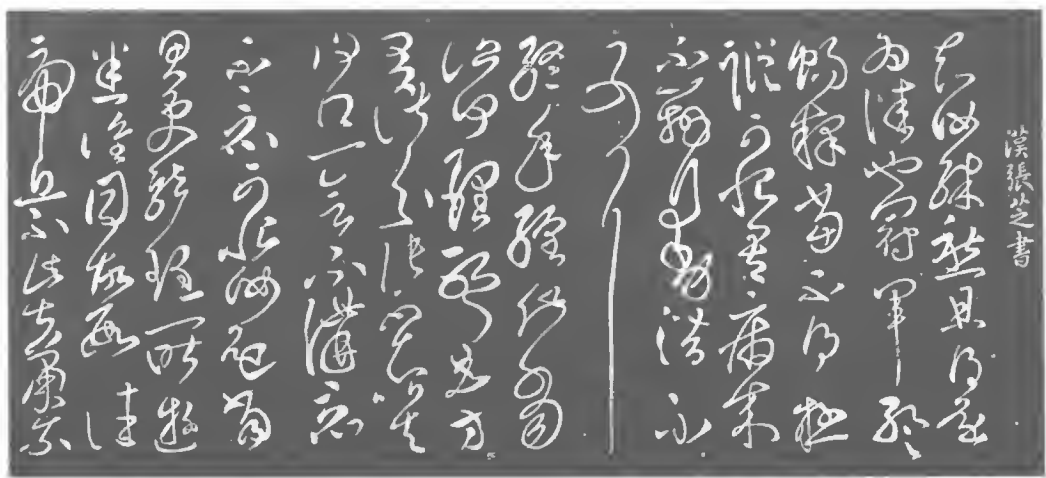 漢張芝書
知汝殊愁且得還
為佳也冠軍暫
暢釋當不得極
蹤可恨吾病來
不辦行動潛不
可耳
終年纏此當
治何理耶且方
有諸分張不知比去
復得一會不講竟
不竟可恨汝還當
思更就理一昔遊
悉誰同故數往
虎丘不此甚蕭索